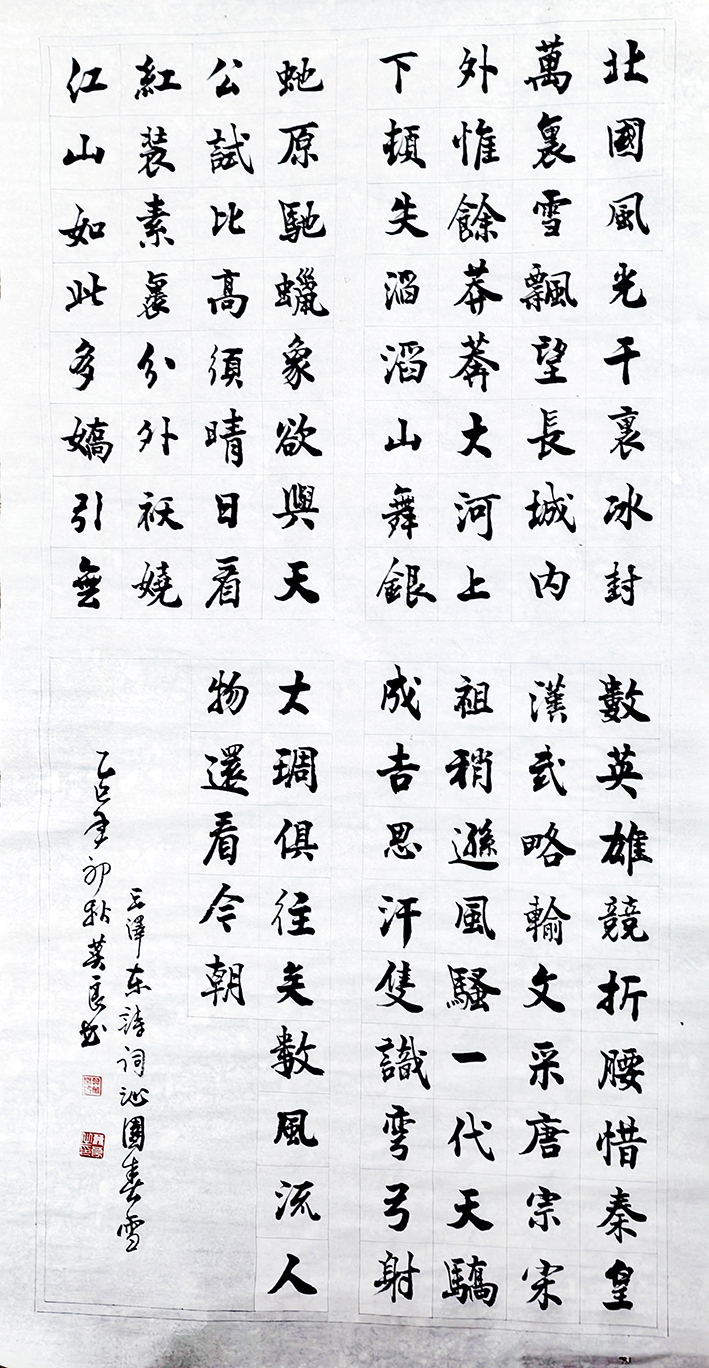 北國風光干裏冰封
萬裏雪飄望長城內
外惟餘莽莽大河上
下頓失滔滔山舞銀
虵原馳蠟象欲與天
公試比高須晴日看
紅裝素裹分外袄嬈
江山如此多嬌引無
數英雄競折腰惜秦皇
漢武略輸文采唐宗宋
祖稍遜風騷一代天驕
成吉思汗隻識彎弓射
大琱俱往矣數風流人
物還看今朝
毛澤东詩詞沁園春雪
乙巳年初秋英良书